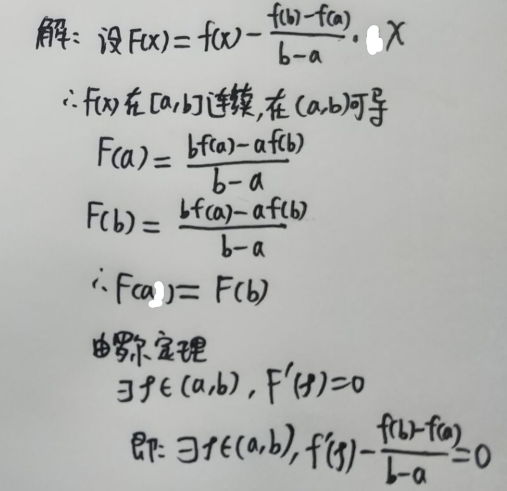 解: 设 F(x) = f(x) - \frac{f(b)-f(a)}{b-a} · x
∴ f(x) 在 [a,b] 连续, 在 (a,b) 可导
F(a) = \frac{bf(a)-af(b)}{b-a}
F(b) = \frac{bf(a)-af(b)}{b-a}
∴ F(a) = F(b)
由罗尔定理
∃ξ∈(a,b), F'(ξ)=0
即: ∃ξ∈(a,b), f'(ξ) - \frac{f(b)-f(a)}{b-a} = 0